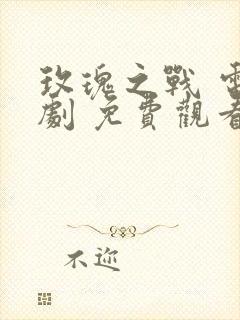 玫瑰之戰 電
劇 免費觀看
不迩